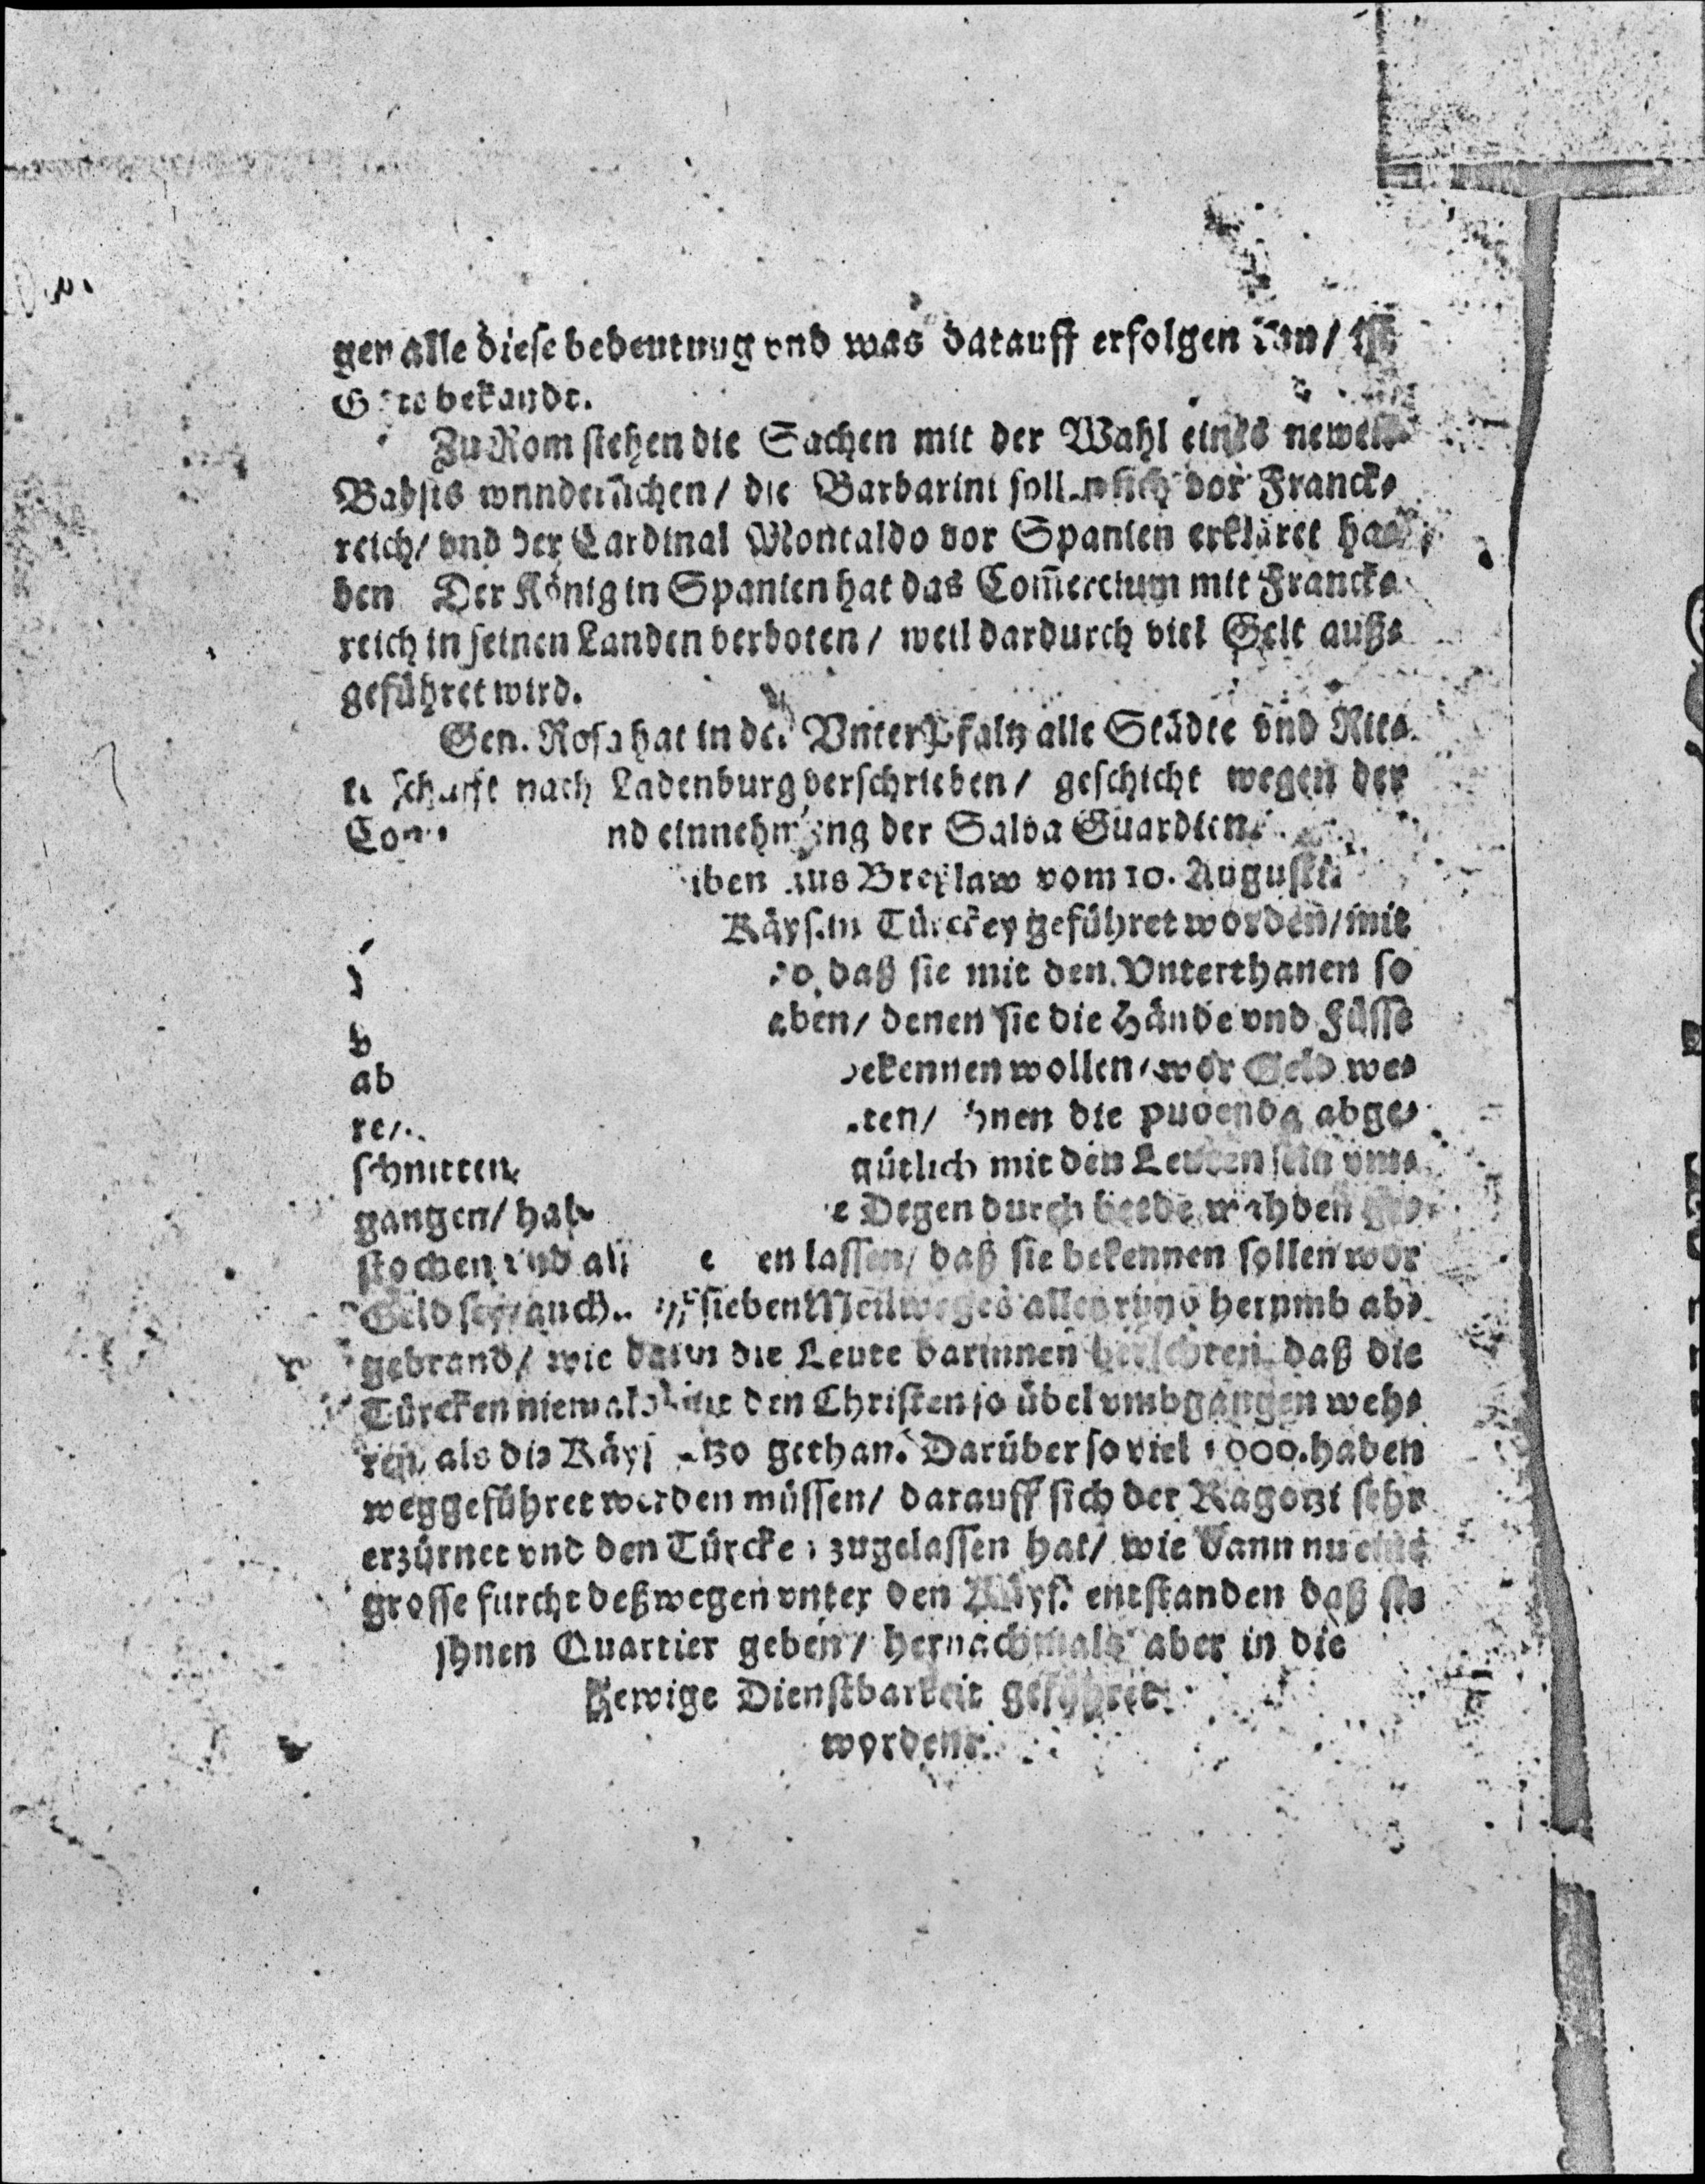 gen alle diese bedeutung vnd was datauff erfolgen kan / ist
bekandt.
Zu Rom stehen die Sachen mit der Wahl eines newen
Babsts wunderlichen / die Barbarini sollen sich vor Franck-
reich / vnd der Cardinal Montaldo vor Spanien erkläret ha-
ben Der König in Spanien hat das Com̃ercium mit Franck-
reich in seinen Landen verboten / weil dardurch viel Gelt auß-
geführet wird.
Gen. Rosa hat in der Vnter Pfaltz alle Städte vnd Rit-
terschafft nach Ladenburg verschrieben / geschicht wegen der
einnehmung der Salva Guardien.
aus Breßlaw vom 10. Augusti
Käys. in Türckey geführet worden / mit
daß sie mit den Vnterthanen so
denen sie die Hände vnd Füsse
ab bekennen wollen / wor Geld we-
ren / ihnen die pudenda abge-
schnitten gütlich mit den Leuten sein vmb-
gangen / Degen durch beede
stochen vnd lassen / daß sie bekennen sollen wor
Geld sey / auch sieben Meilweges herumb ab-
gebrand / wie dann die Leute darinnen daß die
Türcken niemals mit den Christen so übel vmbgangen weh-
ren als die Käys. itzo gethan. Darüber so viel 1000. haben
weggeführet werden müssen / darauff sich der Ragotzi sehr
erzürnet vnd den Türcken zugelassen hat / wie dann nu eine
grosse furcht deßwegen vnter den Käys. entstanden daß sie
jhnen Quartier geben / hernachmals aber in die
ewige Dienstbarkeit geführet
worden.